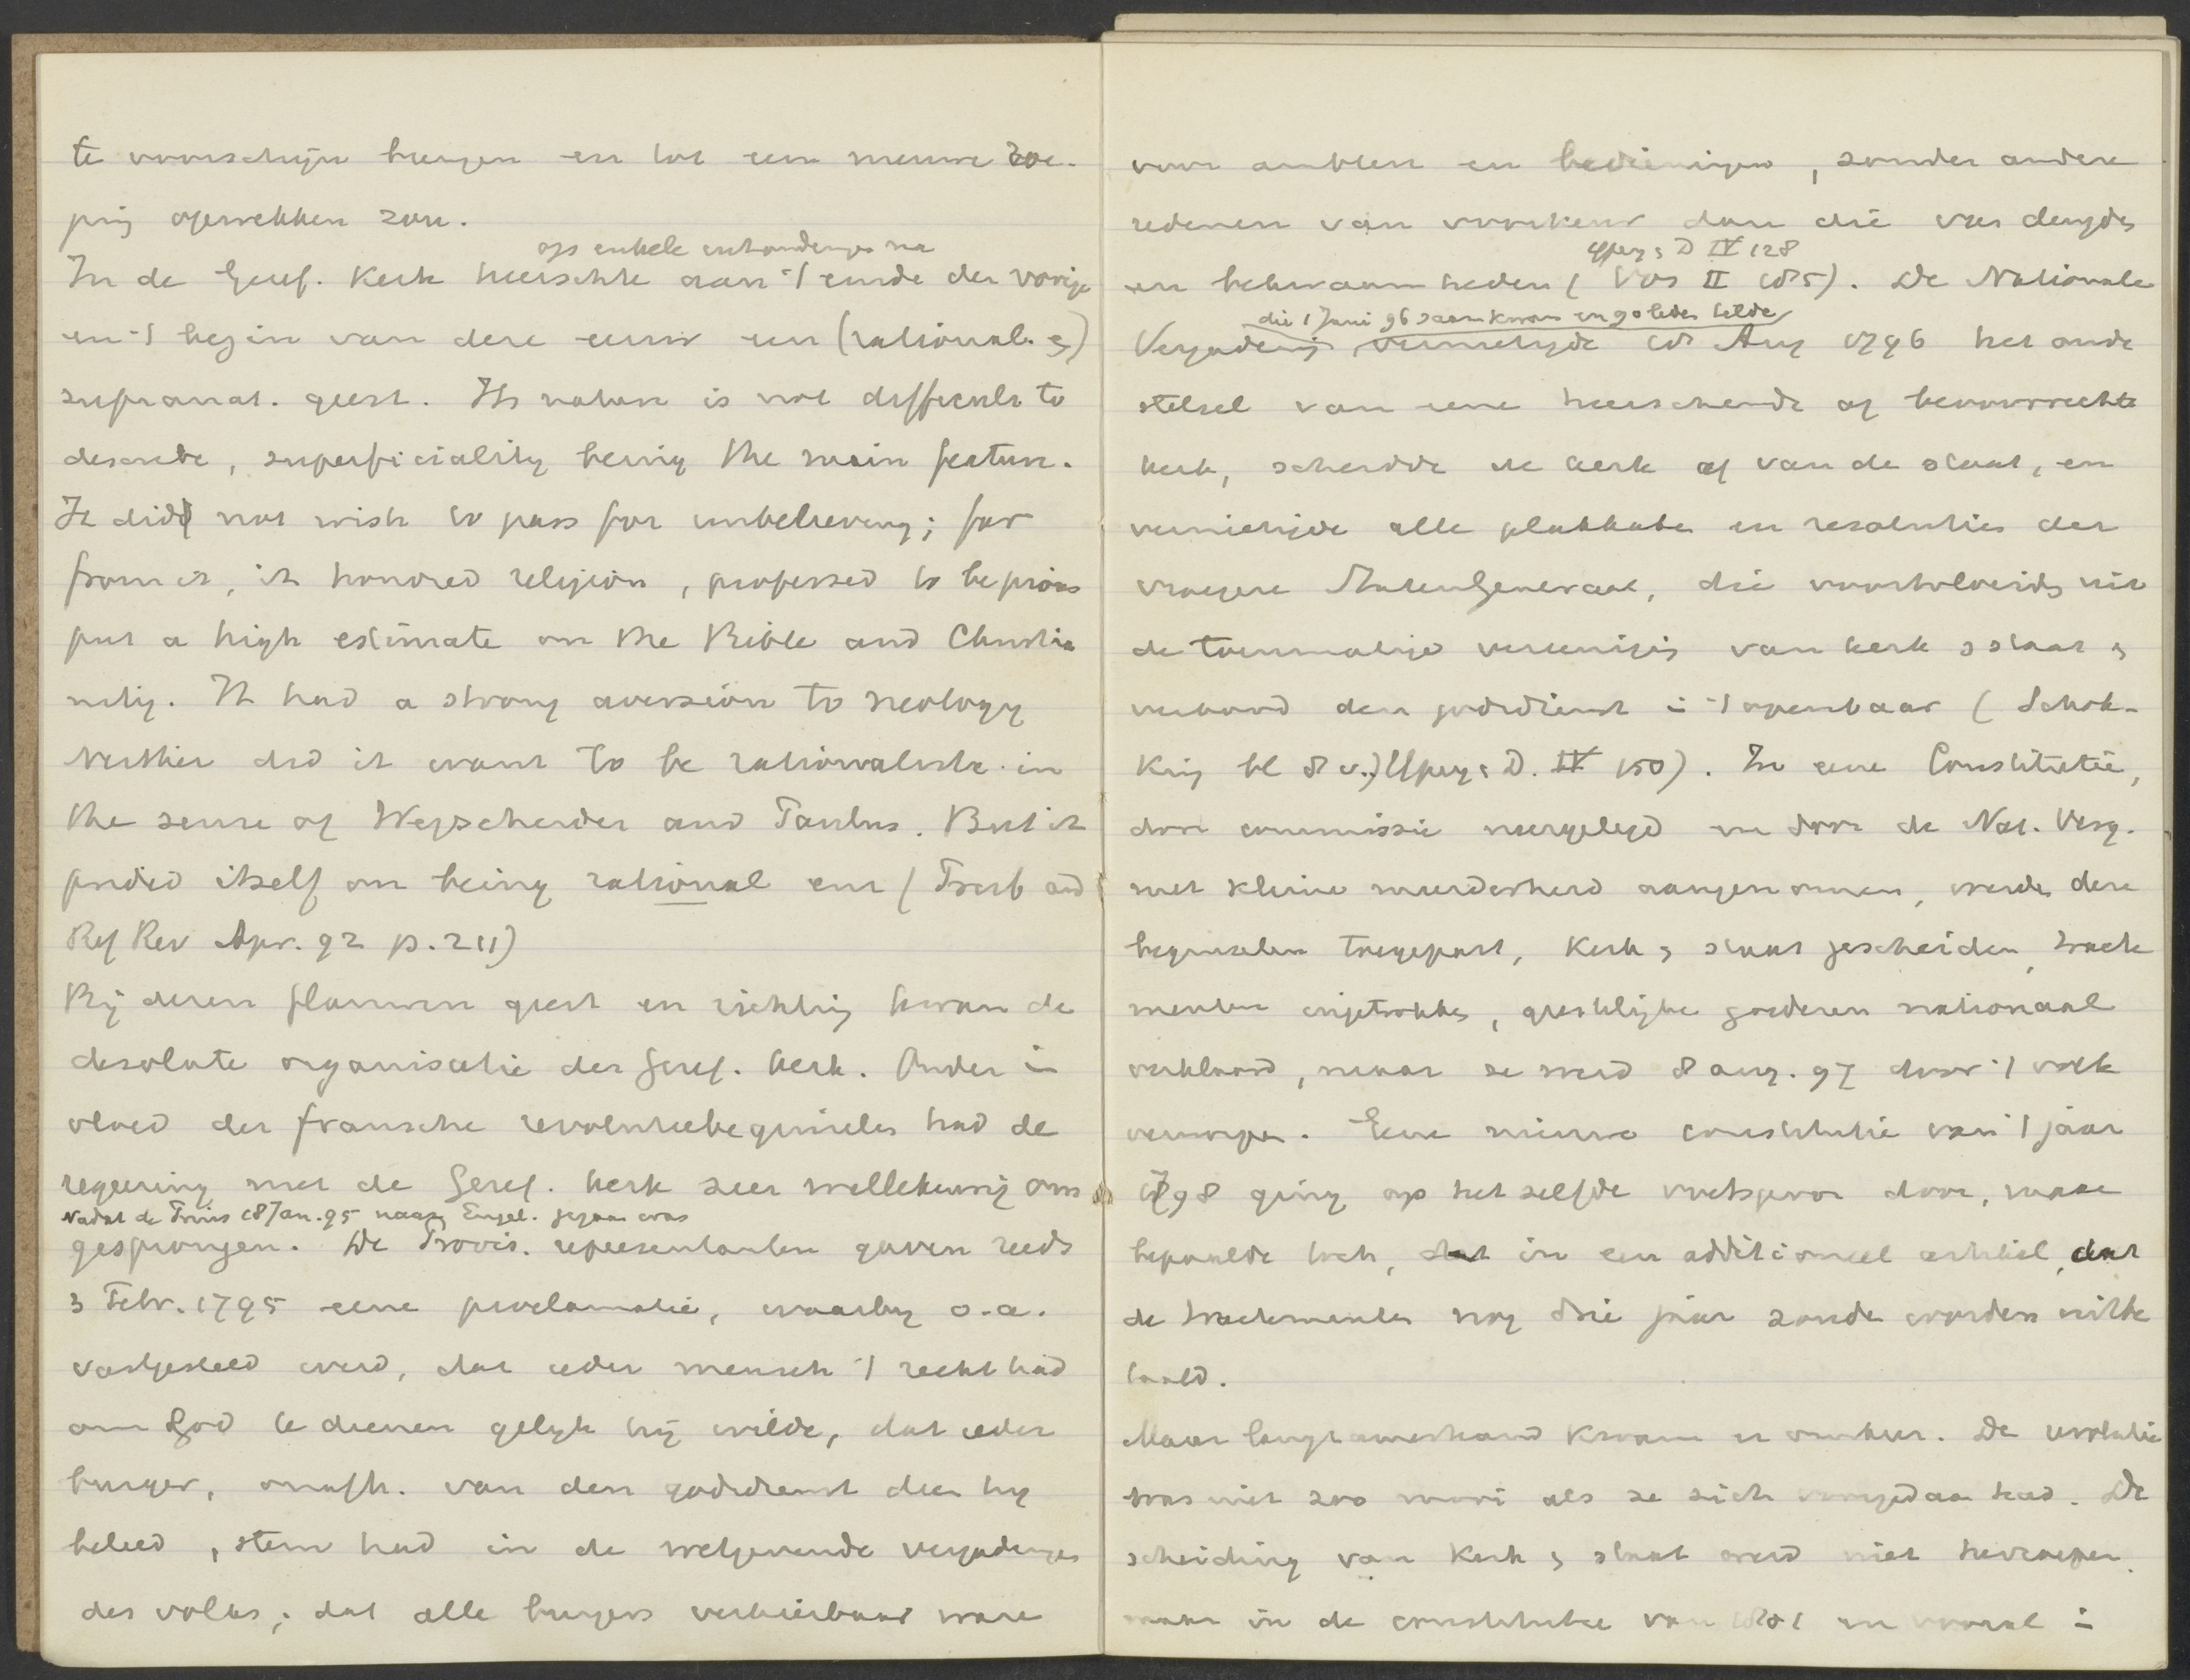 te voorschijn brengen en tot een nieuwe toe-
pring opwekken zou.
op enkele uitzonderingen na
In de Geref. Kerk heerschte aan 't einde der vorige
en 't begin van deze eeuw een (rational. &)
supranat. geest. Its nature is not difficult to
describe, superficiality being the main feature.
It did not wish to pass for unbelieving; far
from it, it honored religion, professed to be pious
put a high estimate on the Bible and Christia
nity. It had a strong aversion to neology
Neither did it want to be rationalistic in
the sense of Wegscheider and Paulus. But it
prided itself on being rational enz (Presb and
Ref Rev Apr. 92 p. 211)
Bij dezen flauwen geest en richting kwam de
desolate organisatie der Geref. Kerk. Onder in
vloed der fransche revolutiebeginselen had de
regeering met de Geref. Kerk zeer willekeurig om
Nadat de Prins 18 Jan. 95 naar Engel. gegaan was
gesprongen. De Provis. representanten gaven reeds
3 Febr. 1795 eene proclamatie, waarbij o.a.
vastgesteld werd, dat ieder mensch 't recht had
om God te dienen gelijk hij wilde, dat ieder
burger, onafh. van den godsdienst dien hij
beleed, stem had in de wetgevende vergaderingen
des volks; dat alle burgers verkiesbaar ware
voor ambten en bedieningen, zonder andere
redenen van voorkeur dan die van deugden
Ypey & D IV 128
en bekwaamheden (Vos II 185). De Nationale
die 1 Juni 96 saamkwam en 90 leden telde
Vergadering vernietigde 18 Aug 1796 het oude
stelsel van eene heerschende of bevoorrechte
kerk, scheidde de kerk af van de staat, en
vernietigde alle plakkaten en resoluties der
vroegere Staten Generaal, die voortvloeiden uit
de toenmalige vereeniging van kerk & staat &
verbood den godsdienst in 't openbaar (Schok-
king bl 8 v.) Ypey & D. IV 150). In eene Constitutie,
door commissie neergelegd en door de Nat. Verg.
met kleine meerderheid aangenomen, werden deze
beginselen toegepast, Kerk & staat gescheiden, tracte
menten ingetrokken, geestelijke goederen nationaal
verklaard, maar ze werd 8 aug. 97 door 't volk
verworpen. Eene nieuwe constitutie van 't jaar
1798 ging op het zelfde voetspoor door, maar
bepaalde toch, in een additioneel artikel, dat
de tractementen nog drie jaar zouden worden uitbe
taald.
Maar langzamerhand kwam er omkeer. De revolutie
was niet zoo mooi als ze zich voorgedaan had. De
scheiding van Kerk & staat werd niet herroepen
maar in de constitutie van 1801 en vooral in